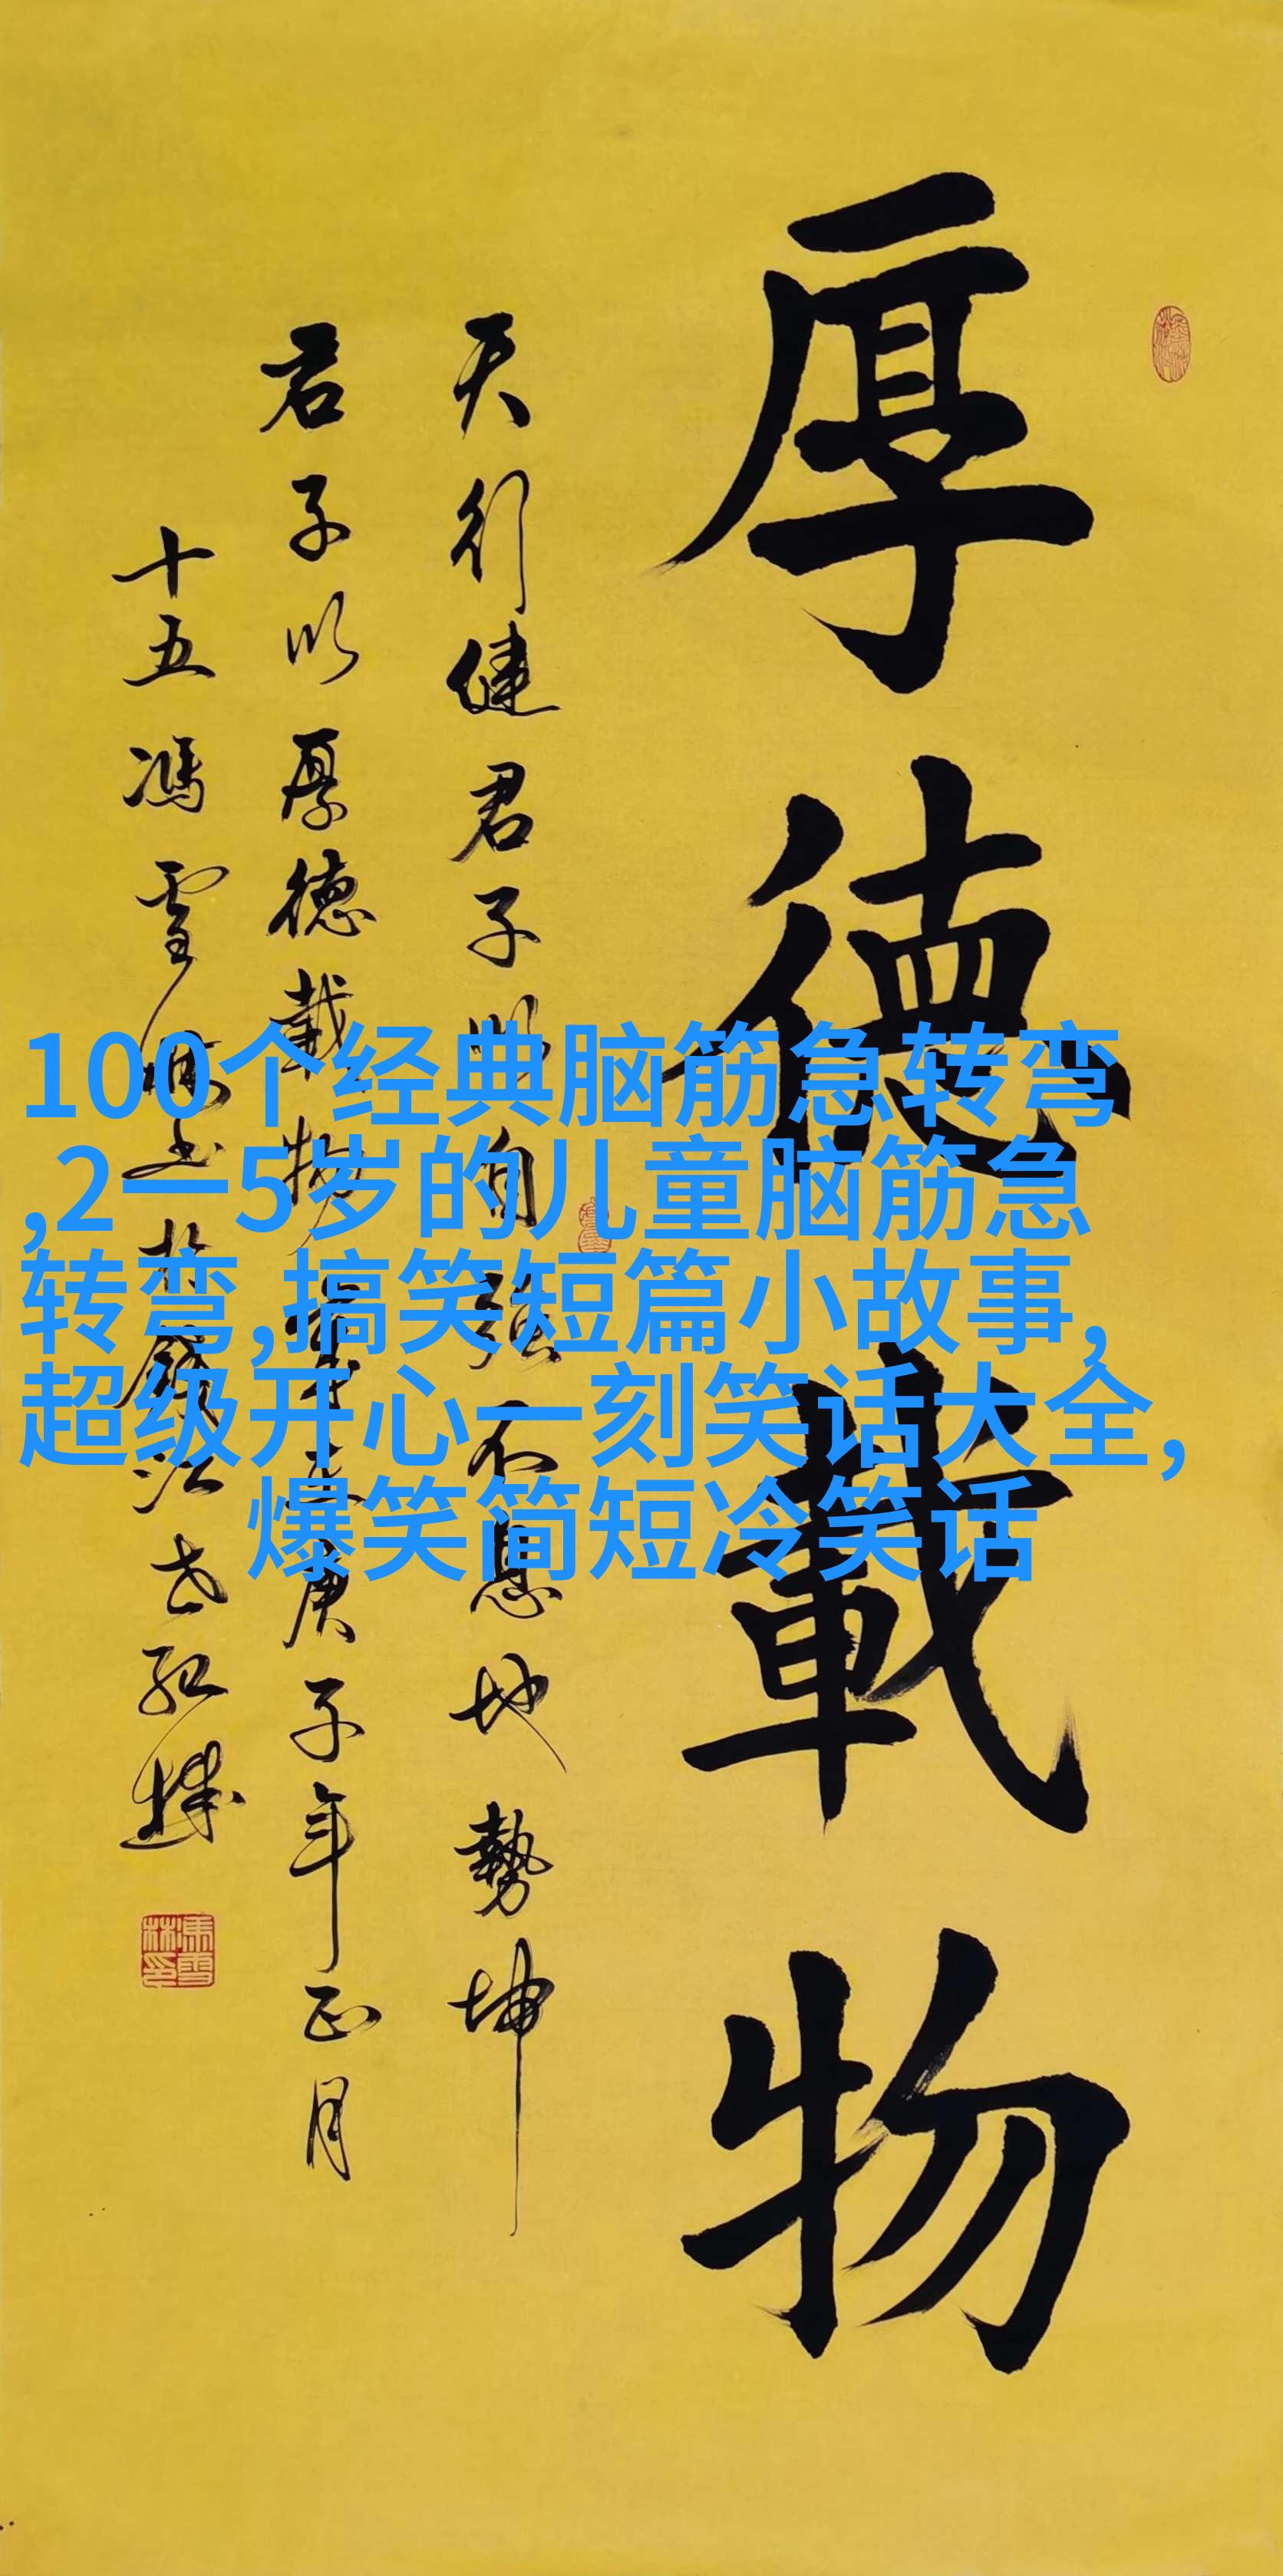 厚德載物
天行健君子以自強不息地勢坤
君子以厚德載物 庚子年正月
十五馮雪林書於
100个经典脑筋急转弯
,2一5岁的儿童脑筋急
转弯,搞笑短篇小故事,
超级开心一刻笑话大全,
爆笑简短冷笑话